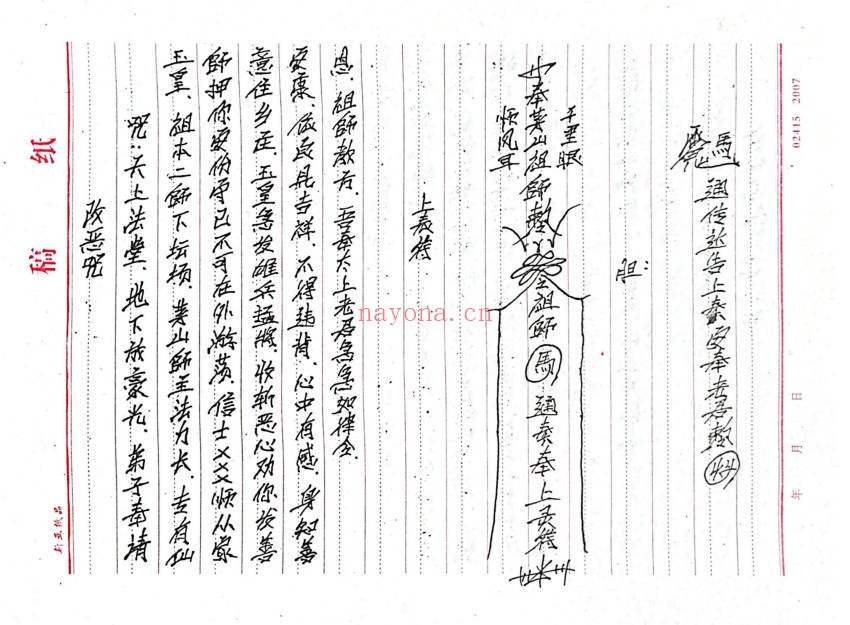 稿纸
新亚纸品
改恶咒
咒:天上法堂、地下放豪光、弟子奉请
玉皇、祖本二師下坛场、茅山師主法力长、专有仙
師押你要份守己不可在外游荡、信士×××顺从家
意住乡庄、玉皇急发雄兵猛将、收斩恶心劝你发善
安康、依 具吉祥、不得违背、心中有感、身知善
恩、祖師敕 、吾奉太上老君急急如律令、
上表符
顺风耳
奉茅山祖師敕令祖師馬 通奏奉上 符
千里眼
胆:
馬 通传 告上奏安奉老君敕
年 月 日
02415 2007
nayona.cn